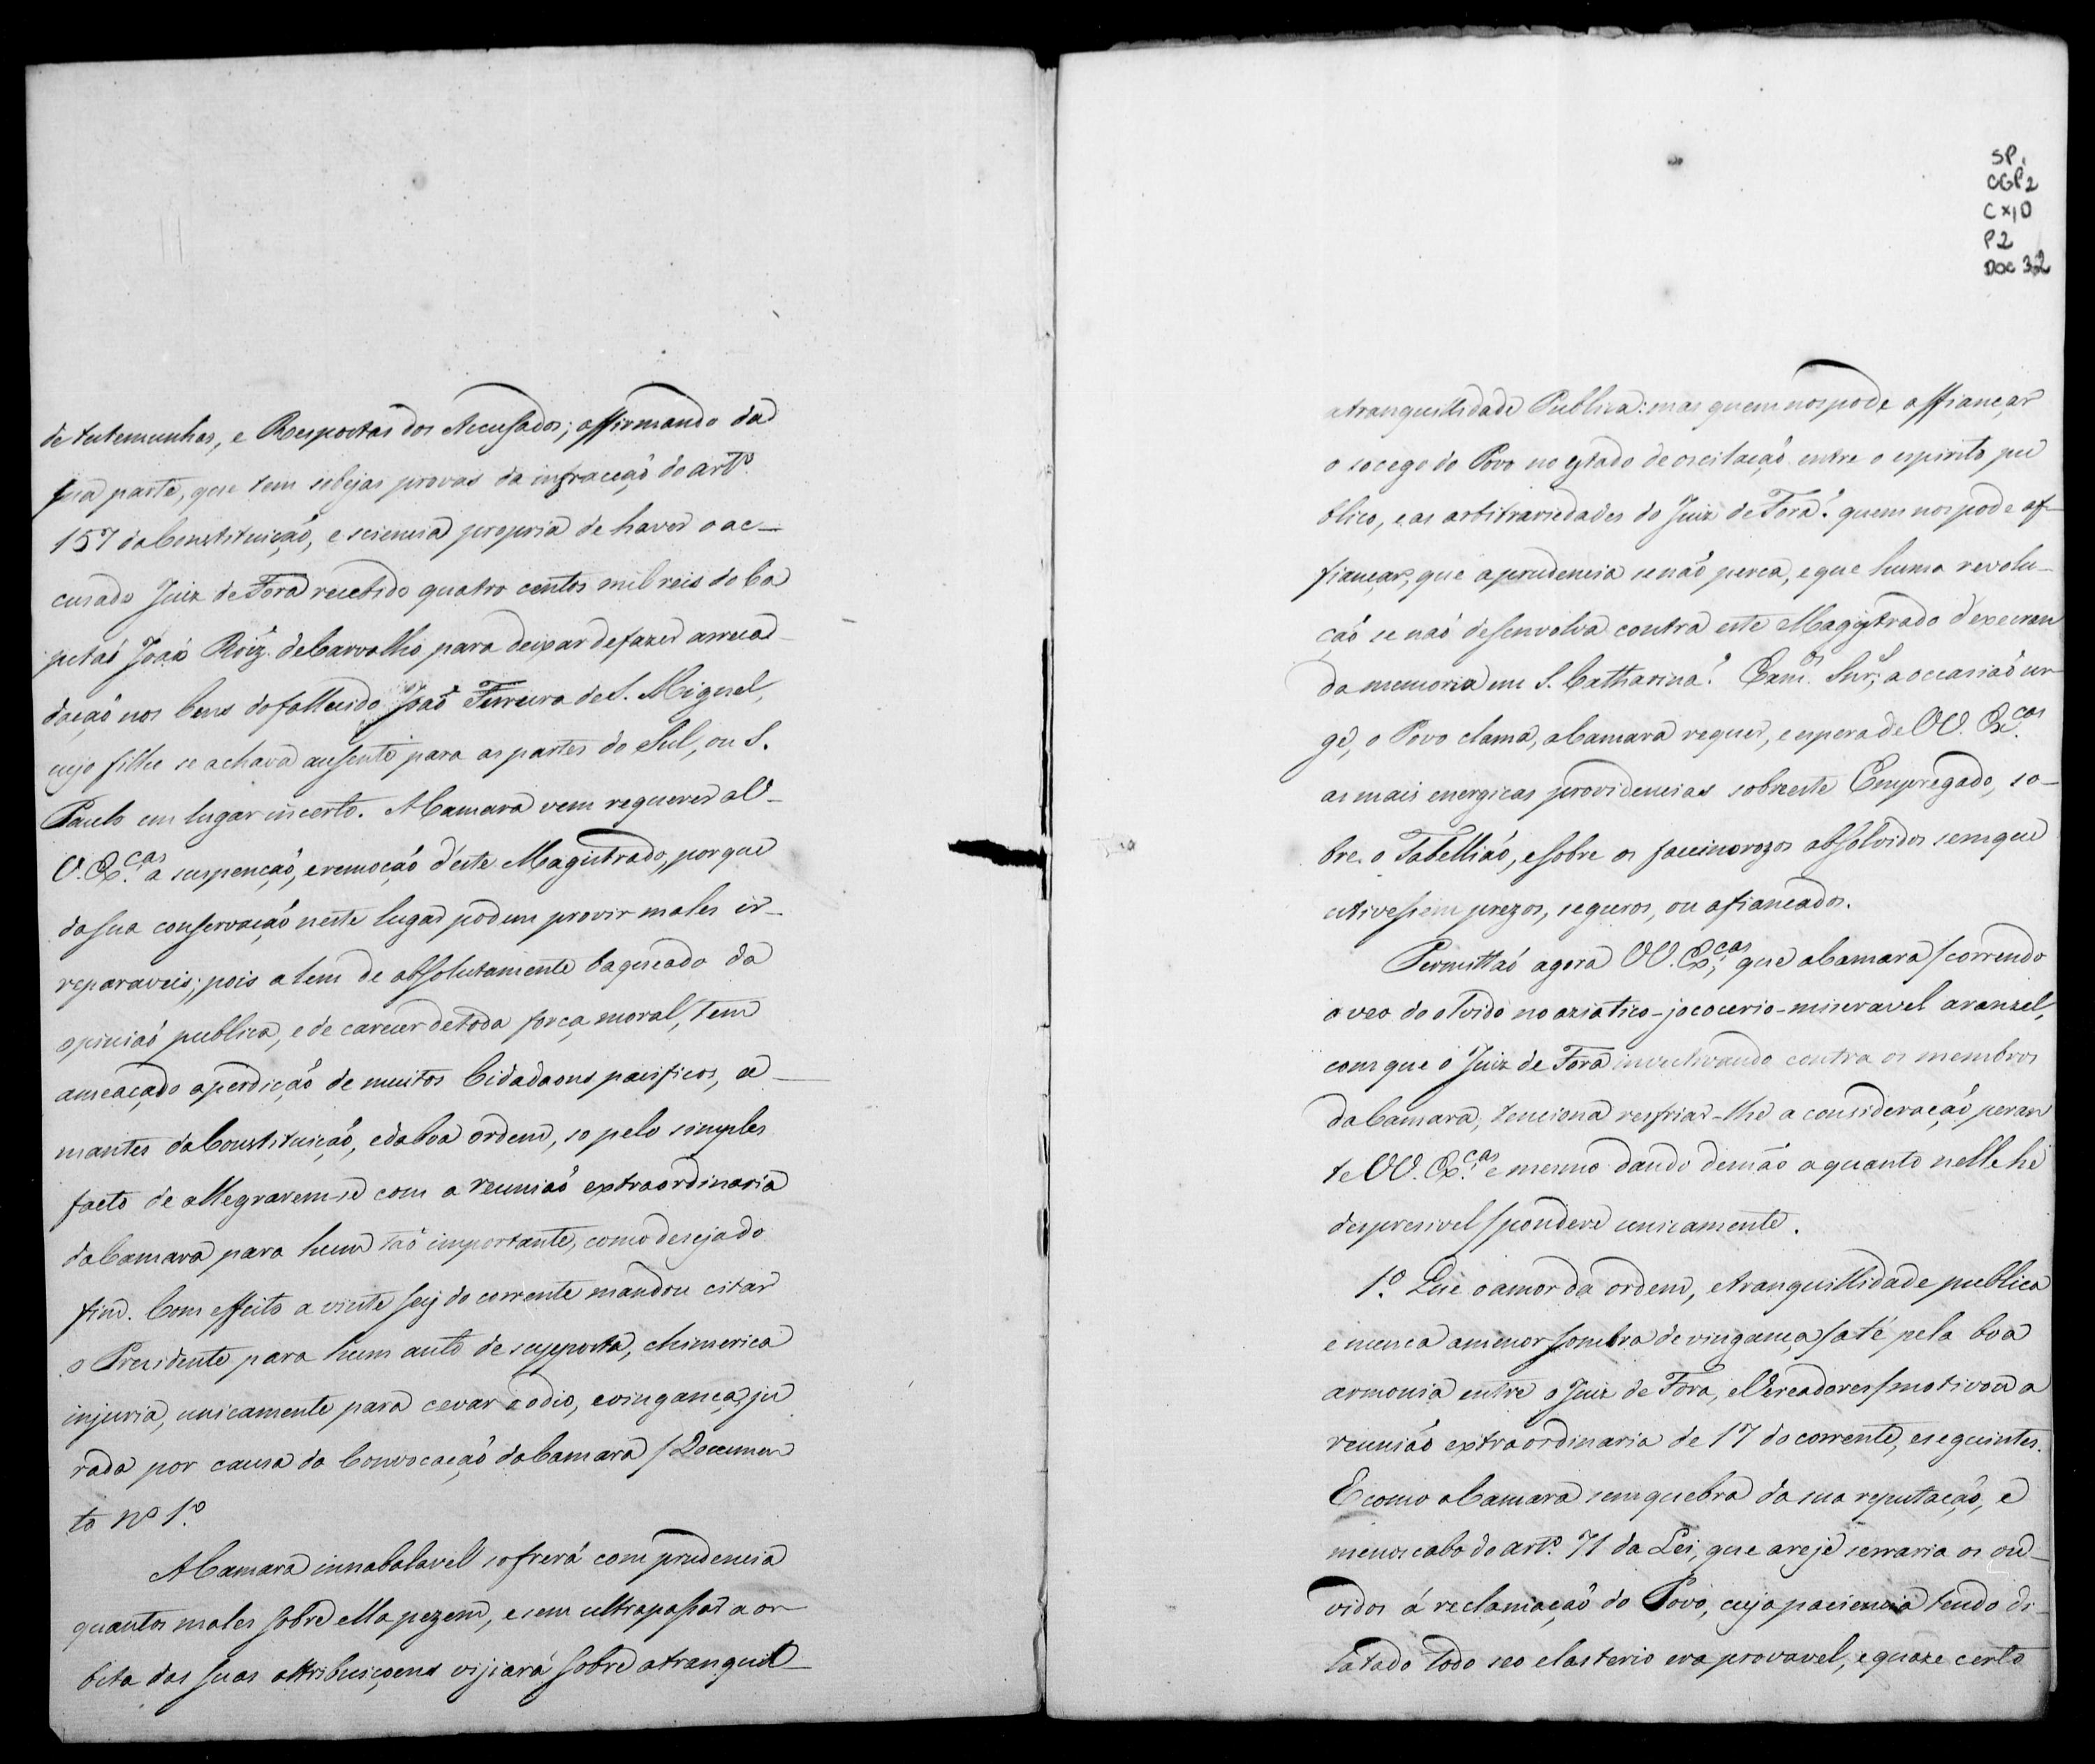 de testemunhas, e Respostas dos Accusados; affirmando da
sua parte, que tem sobejas provas da infracção do artº.
157 da Constituição, e sciencia propria de haver o ac-
cusado Juiz de Fora recebido quatro centos mil reis do Ca
pitaõ Joaõ Roiz. de Carvalho para deixar de fazer arreca-
daçaõ nos bens do fallecido Joaõ Ferreira de S. Miguel,
cujo filho se achava ausente para as partes do Sul, ou S.
Paulo em lugar incerto. A Camara vem requerer a V-
V. Ex.cas a suspençaõ, e remoçaõ d'este Magistrado, porque
da sua conservaçaõ neste lugar podem provir males ir-
reparaveis; pois alem de absolutamente baqueado da
opiniaõ publica, e de carecer de toda força moral, tem
ameaçado a perdiçaõ de muitos Cidadaons pacificos, a-
mantes da Constituiçaõ, e da boa ordem, so pelo simples
facto de allegrarem-se com a reuniaõ extraordinaria
da Camara para hum taõ importante, como desejado
fim. Com effeito a vinte seis do corrente mandou citar
o Presidente para hum auto de supposta, chimerica
injuria, unicamente para cevar o odio, e vingança ju
rada por causa da Convocaçaõ da Camara /Documen
to Nº 1º.
A Camara innabalavel sofrerá com prudencia
quantos males sobre ella pezem, e sem ultrapassar a or-
bita das suas attribuiçoens vijiará sobre a tranquil-
SP.
CGP2
Cx10
P2
DOC 3.2
a tranquilidade Publica: mas quem nos pode affiançar
o socego do Povo no estado de oscilaçaõ entre o espirito pu
blico, e as arbitrariedades do Juiz de Fora? quem nos pode af-
fiançar, que a prudencia se não perca, e que huma revolu-
çaõ se naõ desenvolva contra este Magistrado d'execran
da memoria em S. Catharina? Exm.os Snr.s, a occasiaõ ur-
ge, o Povo clama, a Camara requer, e espera de VV. Ex.cas
as mais energicas providencias sobre este Empregado, so-
bre o Tabelliaõ, e sobre os facinorozos absolvidos sem que
estivessem prezos, seguros, ou afiancados.
Permittaõ agora VV. Ex.cas, que a Camara /correndo
o veo do olvido no aziatico-jocoserio-miseravel aranzel,
com que o Juiz de Fora invectivando contra os membros
da Camara, tenciona resfriar-lhe a consideraçaõ peran
te VV. Ex.cas e mesmo dando de mão a quanto nelle he
despresivel /pondere unicamente.
1º. Que o amor da ordem, e tranquillidade publica
e nunca a menor sombra de vingança /até pela boa
armonia entre o Juiz de Fora, e Vereadores/ motivou a
reuniaõ extraordinaria de 17 do corrente, e seguintes.
E como a Camara sem quebra da sua reputaçaõ, e
menoscabo do artº. 71 da Lei, que a reje serraria os ou-
vidos á reclamaçaõ do Povo, cuja paciencia tendo di-
latado todo seo elasterio era provavel, e quaze certo